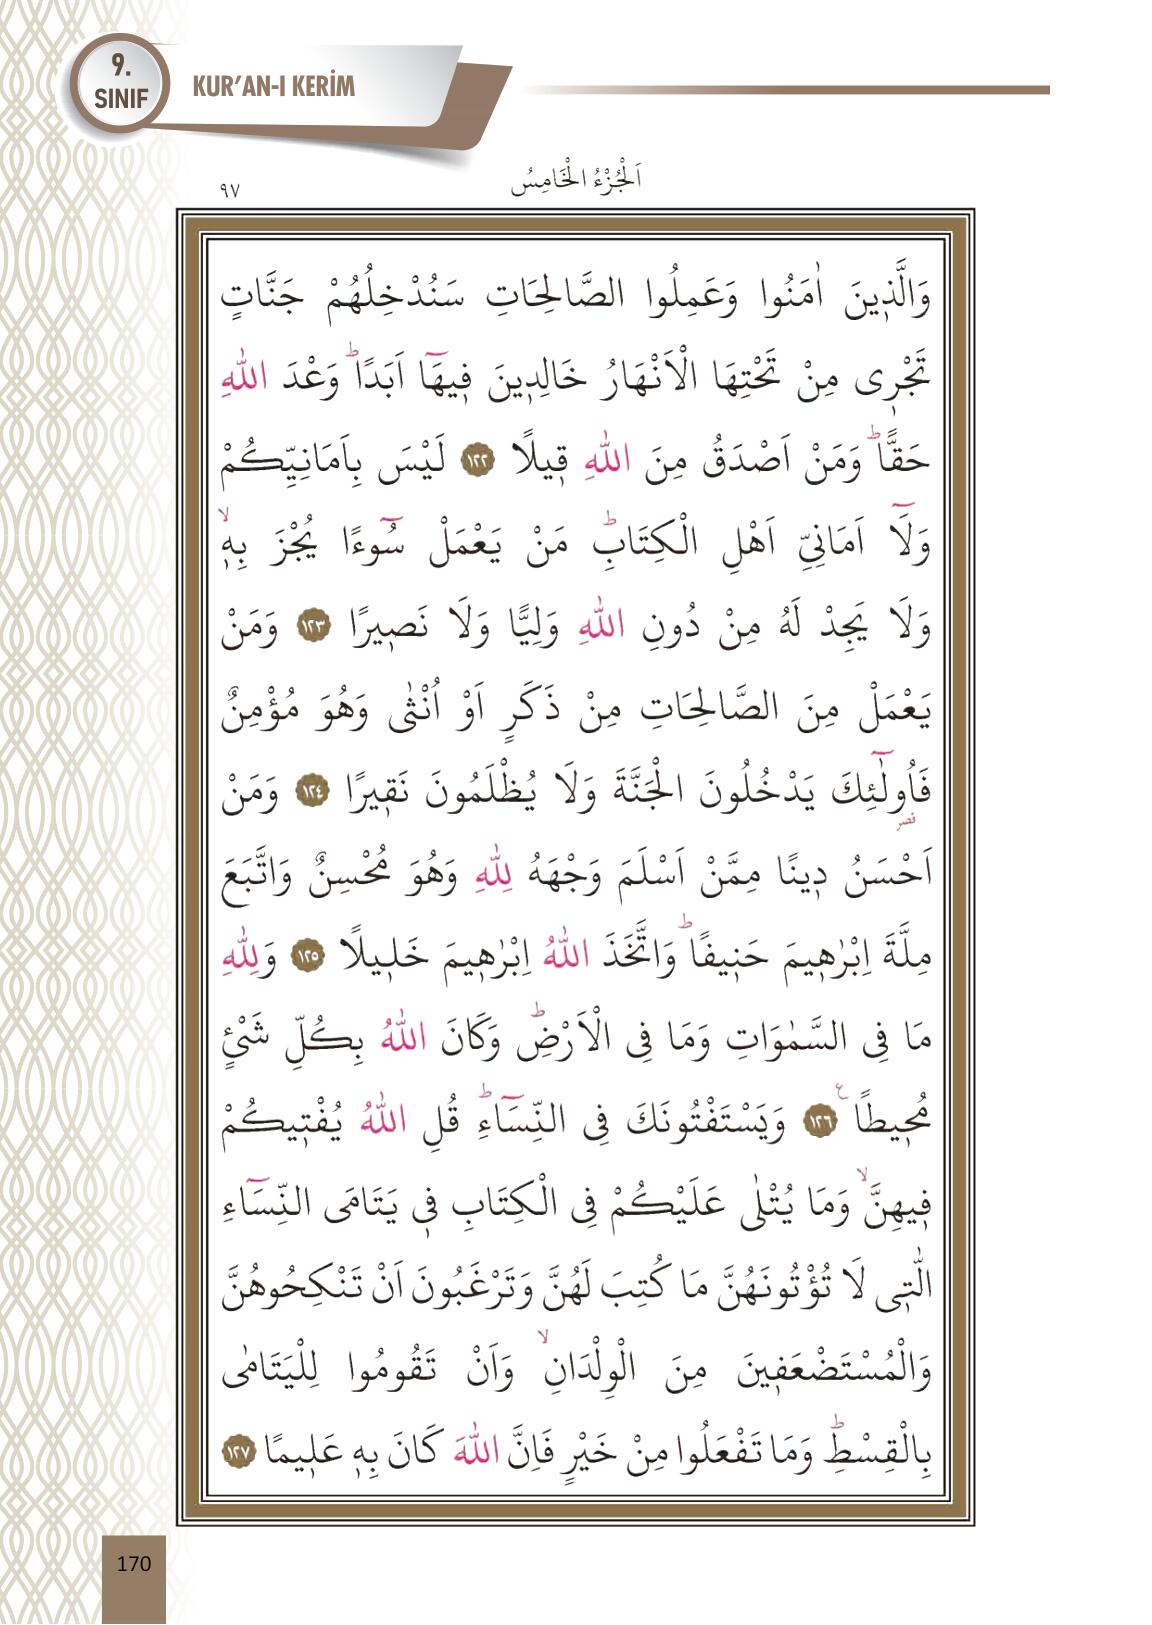 9.
SINIF
KUR’AN-I KERİM
اَلْجُزْءُ الْخَامِسُ
٩٧
وَالَّذ۪ينَ اٰمَنُوا وَعَمِلُوا الصَّالِحَاتِ سَنُدْخِلُهُمْ جَنَّاتٍ
تَجْر۪ى مِنْ تَحْتِهَا الْاَنْهَارُ خَالِد۪ينَ ف۪يهَٓا اَبَدًاۜ وَعْدَ اللّٰهِ
حَقًّاۜ وَمَنْ اَصْدَقُ مِنَ اللّٰهِ ق۪يلًا ﴿١٢٢﴾ لَيْسَ بِاَمَانِيِّكُمْ
وَلَٓا اَمَانِيِّ اَهْلِ الْكِتَابِۜ مَنْ يَعْمَلْ سُٓوءًا يُجْزَ بِه۪ۙ
وَلَا يَجِدْ لَهُ مِنْ دُونِ اللّٰهِ وَلِيًّا وَلَا نَص۪يرًا ﴿١٢٣﴾ وَمَنْ
يَعْمَلْ مِنَ الصَّالِحَاتِ مِنْ ذَكَرٍ اَوْ اُنْثٰى وَهُوَ مُؤْمِنٌ
فَاُو۬لٰٓئِكَ يَدْخُلُونَ الْجَنَّةَ وَلَا يُظْلَمُونَ نَق۪يرًا ﴿١٢٤﴾ وَمَنْ
قصر
اَحْسَنُ د۪ينًا مِمَّنْ اَسْلَمَ وَجْهَهُ لِلّٰهِ وَهُوَ مُحْسِنٌ وَاتَّبَعَ
مِلَّةَ اِبْرٰه۪يمَ حَن۪يفًاۜ وَاتَّخَذَ اللّٰهُ اِبْرٰه۪يمَ خَل۪يلًا ﴿١٢٥﴾ وَلِلّٰهِ
مَا فِى السَّمٰوَاتِ وَمَا فِى الْاَرْضِۜ وَكَانَ اللّٰهُ بِكُلِّ شَيْءٍ
مُح۪يطًا ع ﴿١٢٦﴾ وَيَسْتَفْتُونَكَ فِى النِّسَٓاءِۜ قُلِ اللّٰهُ يُفْت۪يكُمْ
ف۪يهِنَّۙ وَمَا يُتْلٰى عَلَيْكُمْ فِى الْكِتَابِ ف۪ى يَتَامَى النِّسَٓاءِ
الّٰت۪ى لَا تُؤْتُونَهُنَّ مَا كُتِبَ لَهُنَّ وَتَرْغَبُونَ اَنْ تَنْكِحُوهُنَّ
وَالْمُسْتَضْعَف۪ينَ مِنَ الْوِلْدَانِۙ وَاَنْ تَقُومُوا لِلْيَتَامٰى
بِالْقِسْطِۜ وَمَا تَفْعَلُوا مِنْ خَيْرٍ فَاِنَّ اللّٰهَ كَانَ بِه۪ عَل۪يمًا ﴿١٢٧﴾
170